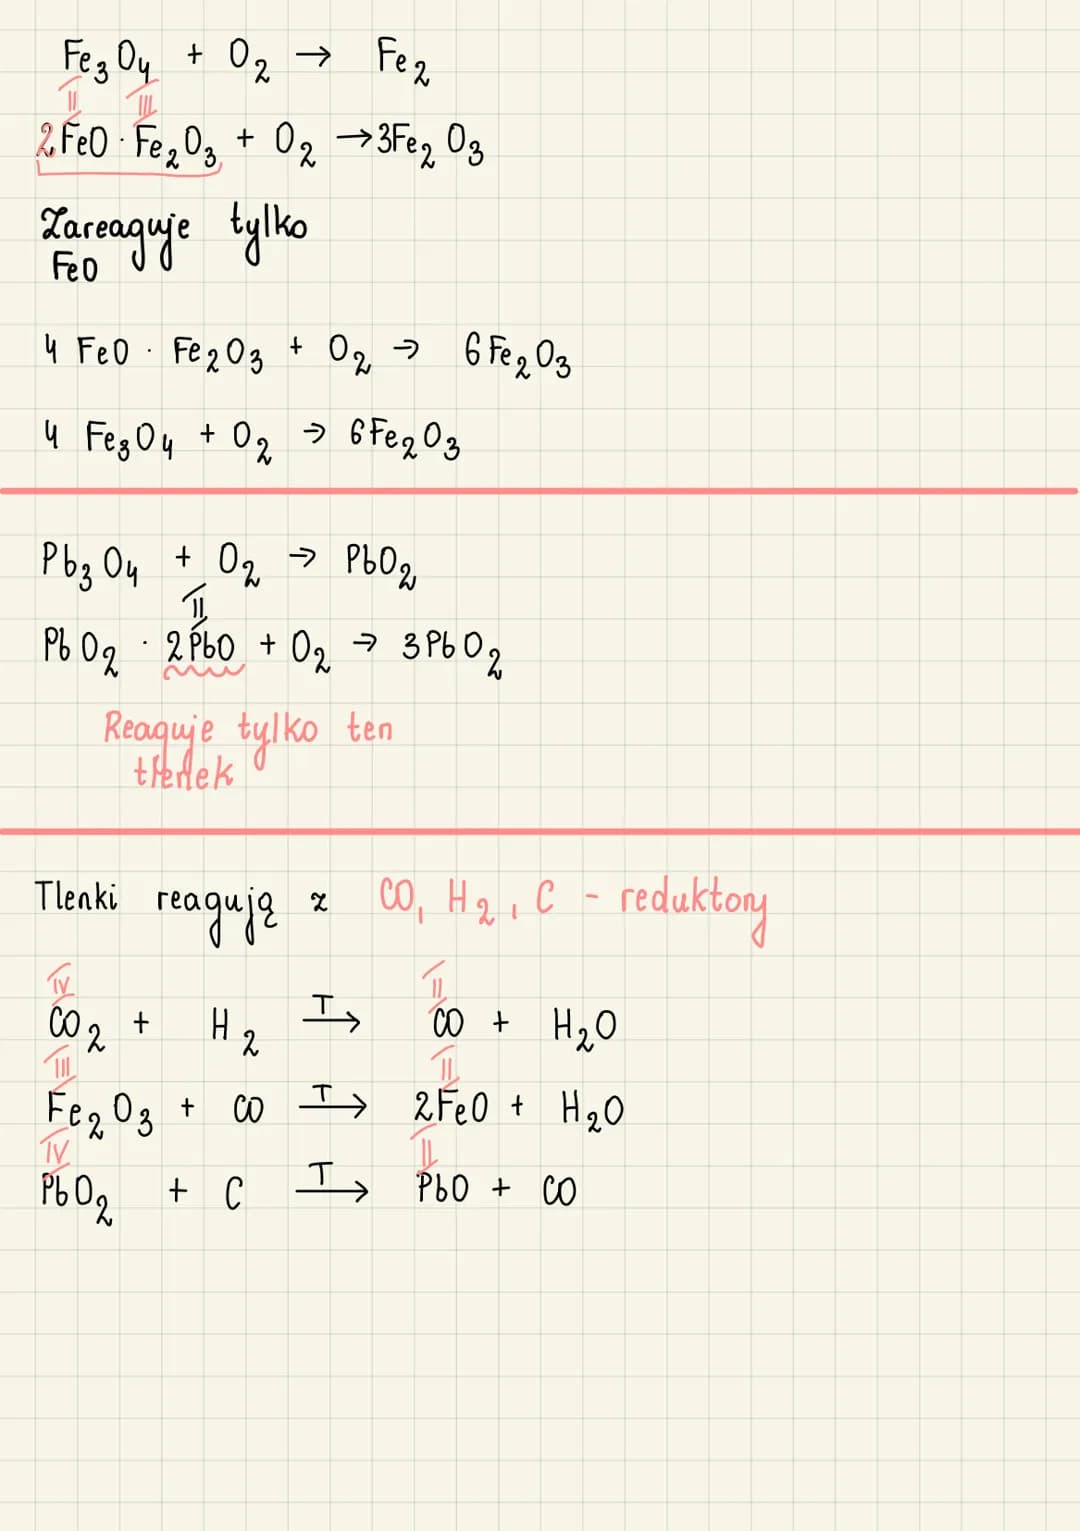 Fe₃O₄ + O₂ → Fe₂
II III
2 FeO · Fe₂O₃ + O₂ → 3Fe₂O₃
Zareaguje tylko
FeO
4 FeO · Fe₂O₃ + O₂ → 6 Fe₂O₃
4 Fe₃O₄ + O₂ → 6Fe₂O₃
Pb₃O₄ + O₂ → PbO₂
II
PbO₂ · 2PbO + O₂ → 3PbO₂
Reaguje tylko ten
tlenek
Tlenki reagują z CO, H₂, C - reduktory
IV II
CO₂ + H₂ T→ CO + H₂O
III II
Fe₂O₃ + CO T→ 2FeO + H₂O
IV II
PbO₂ + C T→ PbO + CO